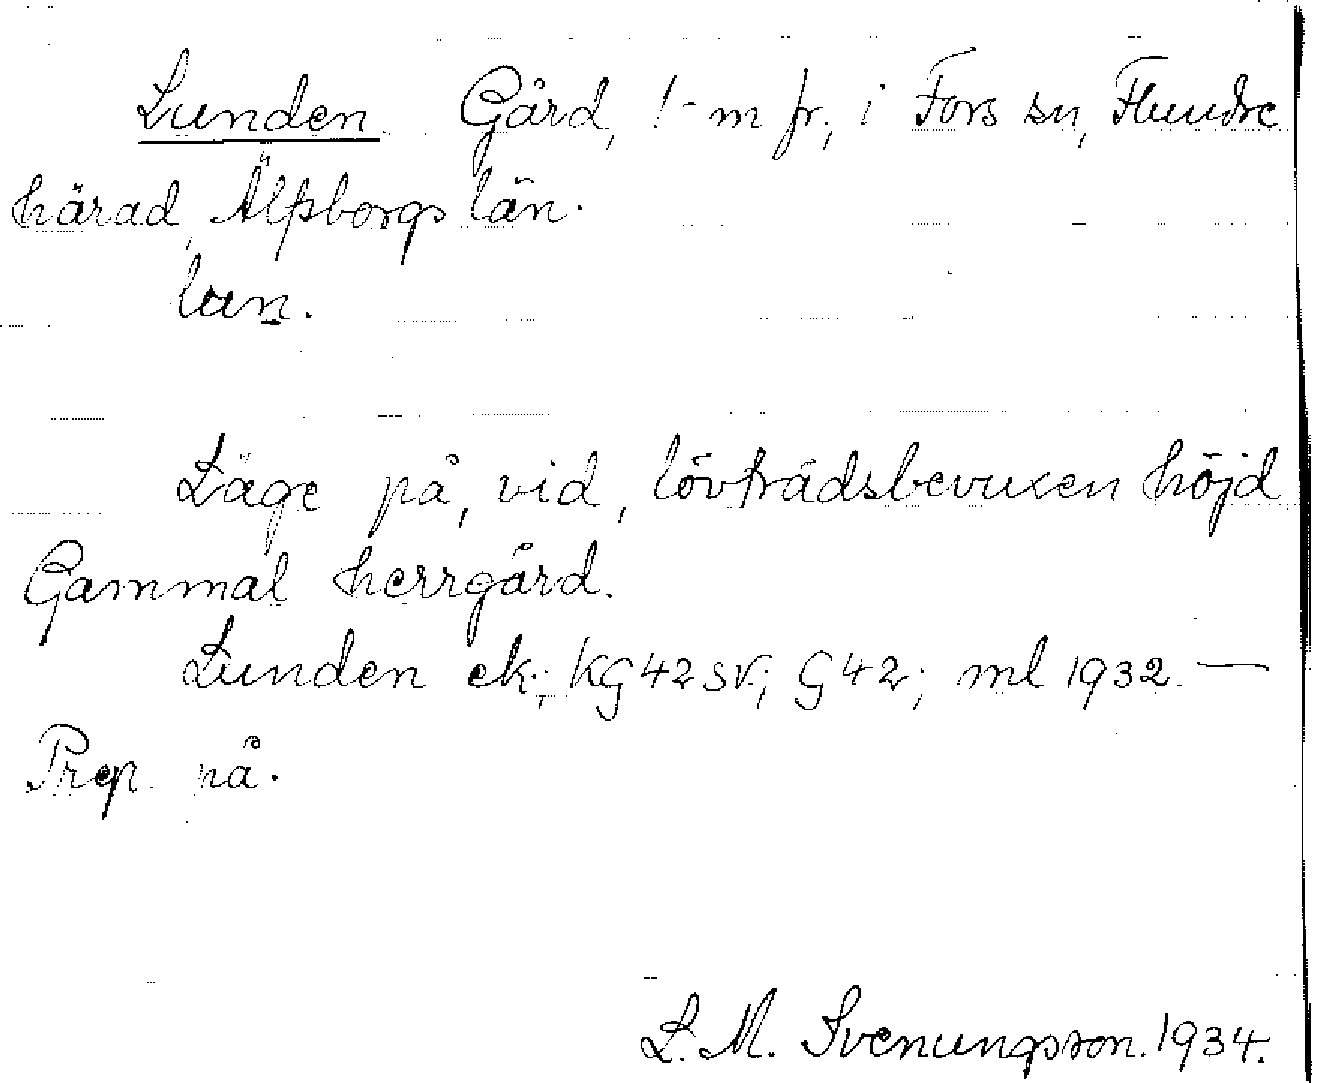 Lunden Gård, 1 m fr, i Fors sn, Flundre
härad, Älfsborgs län.
lun.
Läge på, vid, lövträdsbevuxen höjd
Gammal herrgård.
Lunden ek; KG42SV; G42; ml 1932. —
Prep. på.
L. M. Svenungsson. 1934.